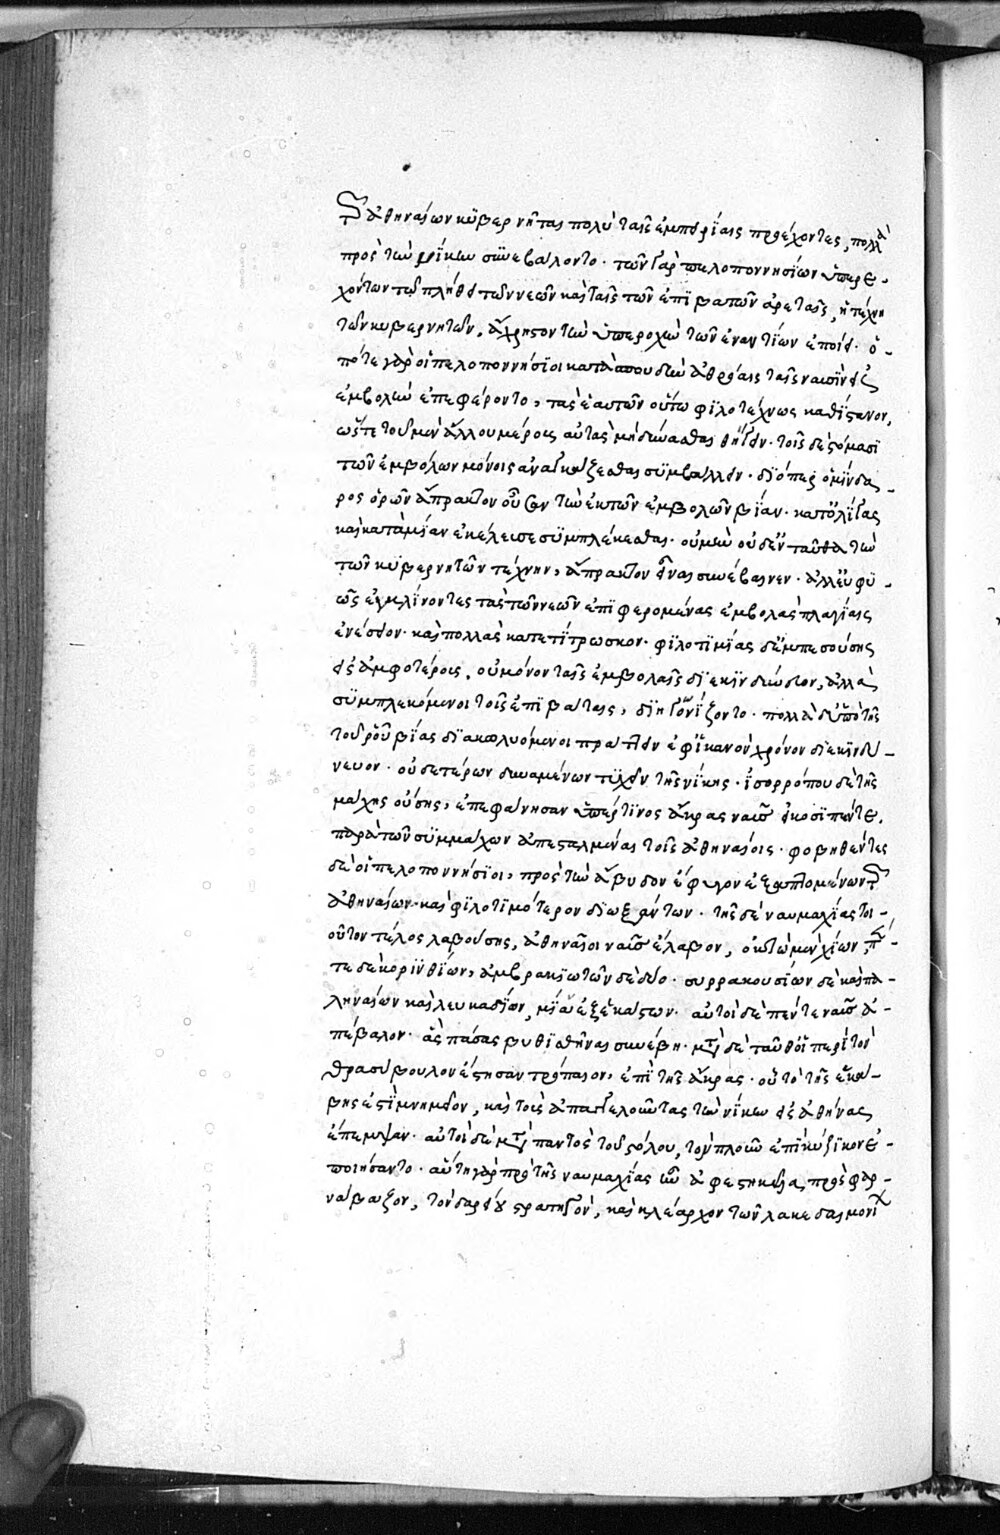 τῶν ἀθηναίων κυβερνῆται πολὺ ταῖς ἐμπειρίαις προέχοντες, πολλὰ
πρὸς τὴν νίκην συνεβάλοντο· τῶν γὰρ πελοποννησίων ὑπερε-
χόντων τῷ πλήθει τῶν νεῶν καὶ ταῖς τῶν ἐπιβατῶν ἀρεταῖς, ἡ τέχνη
τῶν κυβερνητῶν, ἄχρηστον τὴν ὑπεροχὴν τῶν ἐναντίων ἐποίει· ὁ-
πότε γὰρ οἱ πελοποννήσιοι κατὰ σπουδὴν ἀθρόαις ταῖς ναυσὶν εἰς
ἐμβολὴν ἐπεφέροντο, τὰς ἑαυτῶν οὕτω φιλοτέχνως καθίστανον,
ὥστε τοῦ μὲν ἄλλου μέρους αὐτὰς μὴ δύνασθαι θιγεῖν· τοῖς δὲ στόμασι
τῶν ἐμβόλων μόνοις ἀναγκάζεσθαι συμβάλλειν· διόπερ ὁ μίνδα-
ρος ὁρῶν ἄπρακτον οὖσαν τὴν ἐκ τῶν ἐμβολῶν βίαν· κατ' ὀλίγας
καὶ κατὰ μίαν ἐκέλευσε συμπλέκεσθαι· οὐ μὴν οὐδ' ἐνταῦθα τὴν
τῶν κυβερνητῶν τέχνην, ἄπρακτον εἶναι συνέβαινεν· ἀλλ' εὐφυ-
ῶς ἐγκλίνοντες τὰς τῶν νεῶν ἐπιφερομένας ἐμβολὰς πλαγίαις
ἐνέσειον· καὶ πολλὰς κατετίτρωσκον· φιλοτιμίας δ' ἐμπεσούσης
εἰς ἀμφοτέρους, οὐ μόνον ταῖς ἐμβολαῖς διεκινδύνευον, ἀλλὰ
συμπλεκόμενοι τοῖς ἐπιβάταις, διηγωνίζοντο· πολλὰ δ' ὑπὸ τῆς
τοῦ ῥοῦ βίας διακωλυόμενοι πράττειν ἐφ' ἱκανὸν χρόνον διεκινδύ-
νευον· οὐδετέρων δυναμένων τυχεῖν τῆς νίκης· ἰσορρόπου δὲ τῆς
μάχης οὔσης, ἐπεφάνησαν ὑπέρ τινος ἄκρας ναῦς εἰκοσιπέντε,
παρὰ τῶν συμμάχων ἀπεσταλμέναι τοῖς ἀθηναίοις· φοβηθέντες
δὲ οἱ πελοποννήσιοι, πρὸς τὴν ἄβυδον ἔφυγον ἐξαπτομένων τῶν
ἀθηναίων· καὶ φιλοτιμότερον διωξάντων· τῆς δὲ ναυμαχίας τοι-
οῦτον τέλος λαβούσης, ἀθηναῖοι ναῦς ἔλαβον, ὀκτὼ μὲν χίων, πέν-
τε δὲ κορινθίων, ἀμβρακιωτῶν δὲ δύο· συρρακουσίων δὲ καὶ πα-
ληναίων καὶ λευκαδίων, μίαν ἐξ ἑκάστων· αὐτοὶ δὲ πέντε ναῦς ἀ-
πέβαλον· ἃς πάσας βυθισθῆναι συνέβη· μετὰ δὲ ταῦθ' οἱ περὶ τὸν
θρασύβουλον ἔστησαν τρόπαιον, ἐπὶ τῆς ἄκρας· οὗ τὸ τῆς ἑκά-
βης ἐστὶ μνημεῖον, καὶ τοὺς ἀπαγγελοῦντας τὴν νίκην εἰς ἀθήνας
ἔπεμψαν· αὐτοὶ δὲ μετὰ παντὸς τοῦ στόλου, τὸν πλοῦν ἐπὶ κύζικον ἐ-
ποιήσαντο· αὕτη γὰρ πρὸ τῆς ναυμαχίας ἦν ἀφεστηκυῖα πρὸς φαρ-
νάβαζον, τὸν δαρείου στρατηγὸν, καὶ κλέαρχον τῶν λακεδαιμονίων